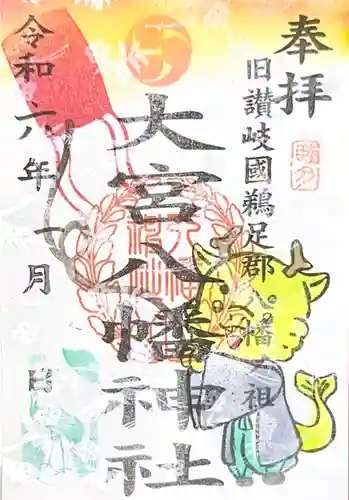 奉拝
旧讃岐國鵜足郡八幡之祖
大宮八幡神社
令和六年一月 日